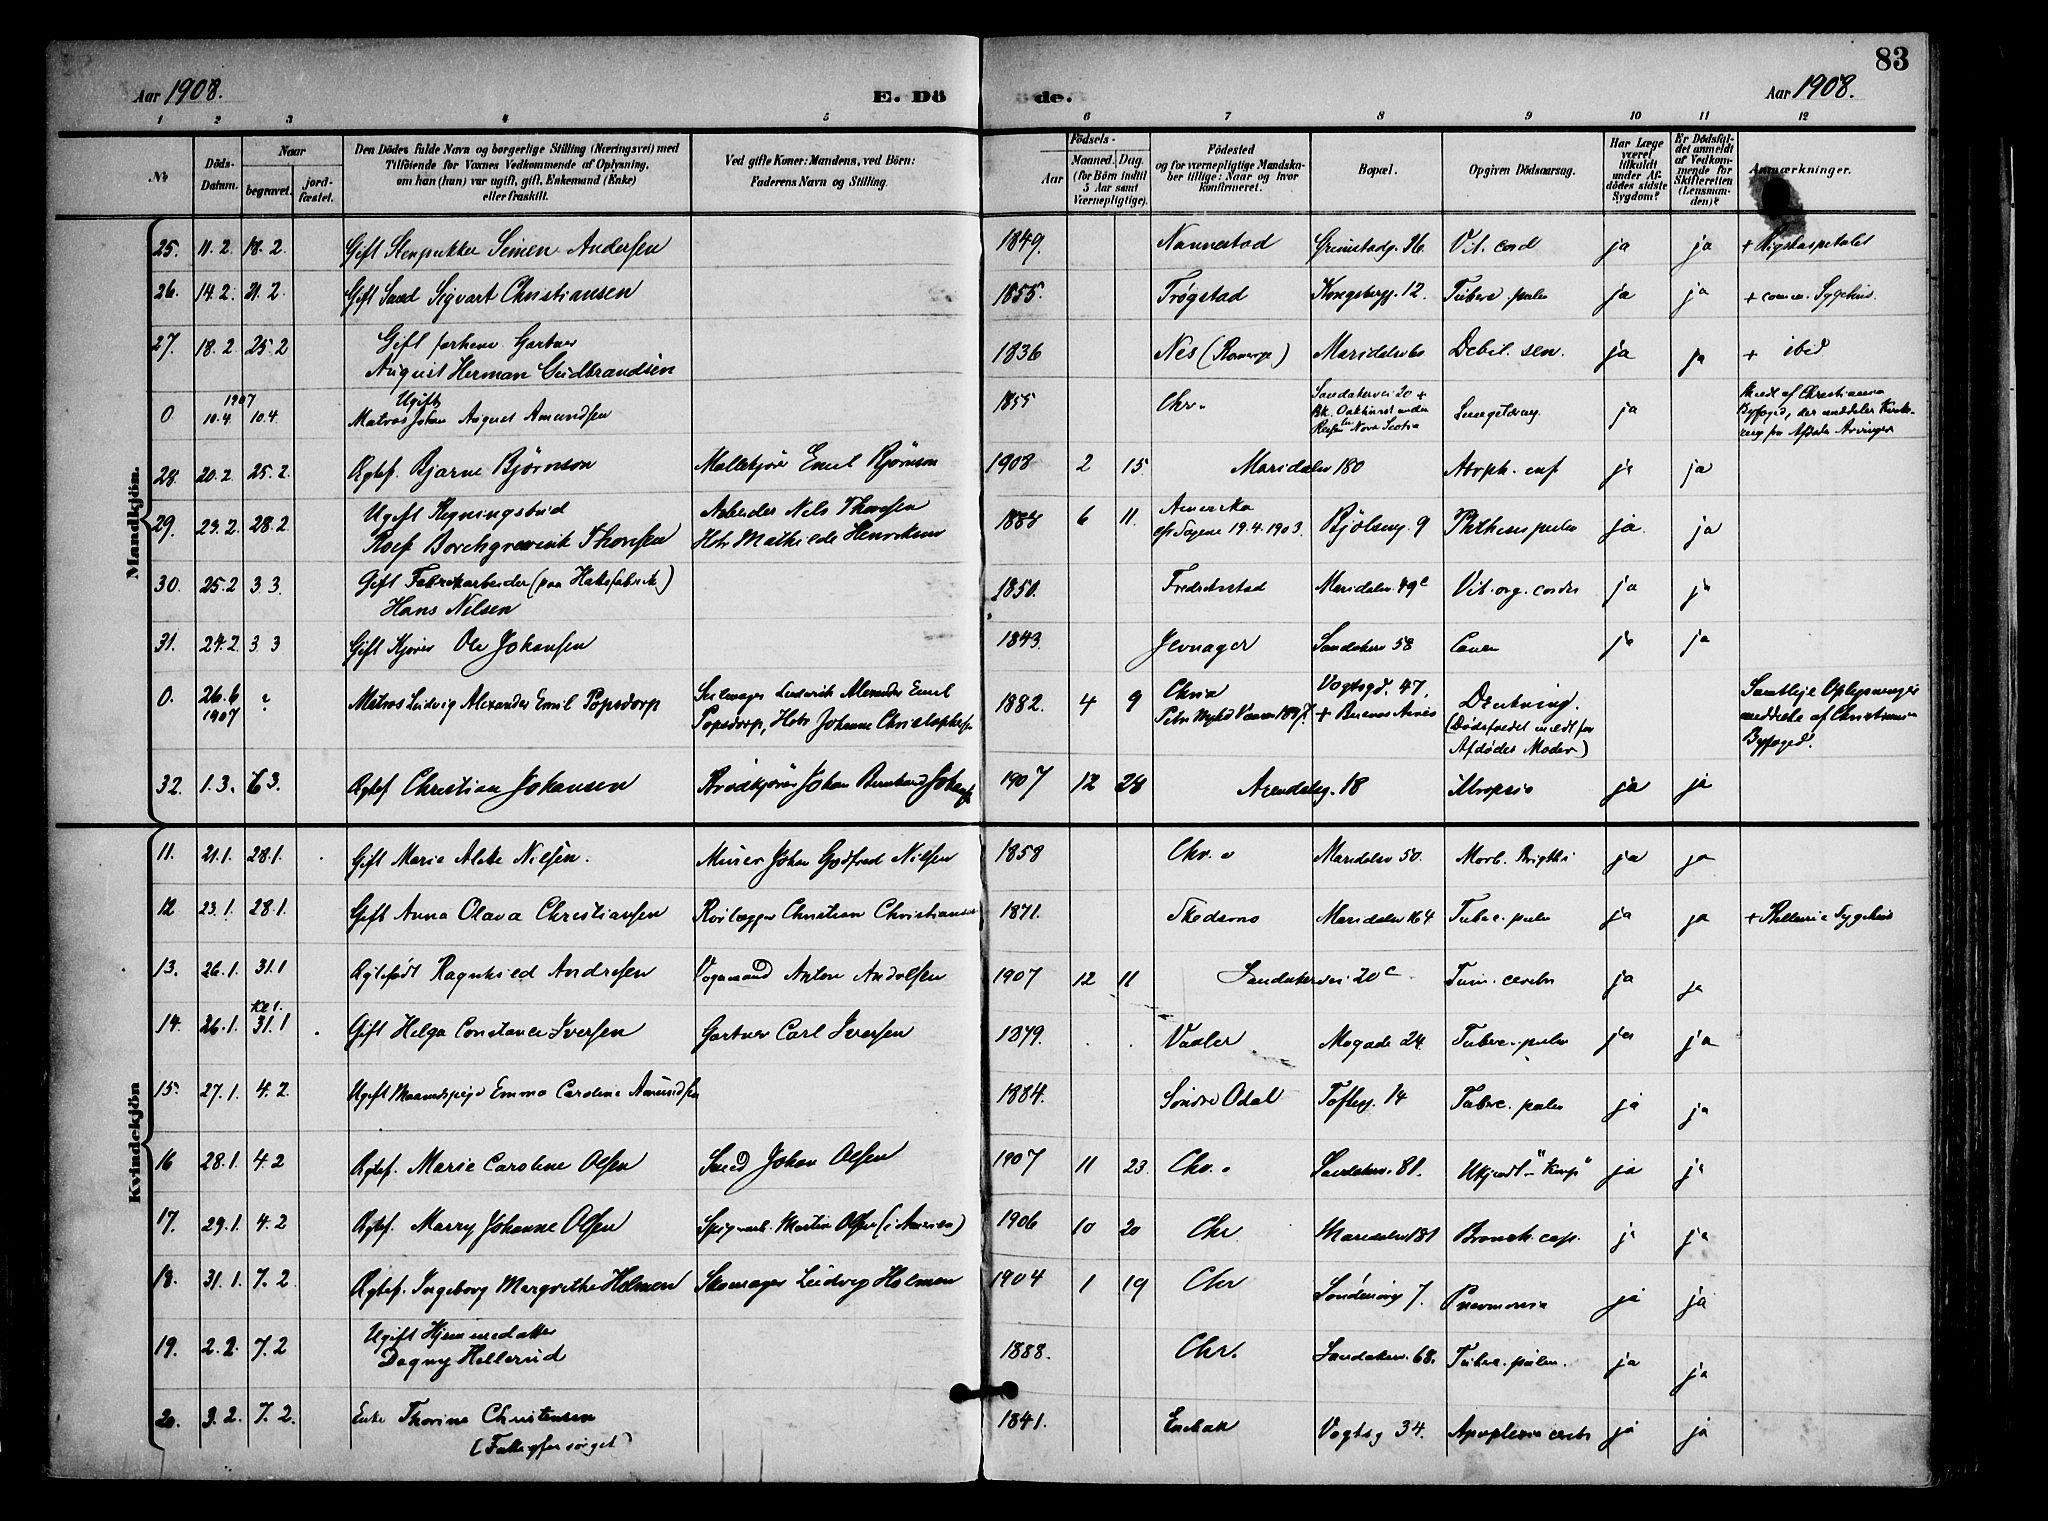 83
Aar 1908. E. Dö de. Aar 1908.
1 2 3 4 5 6 7 8 9 10 11 12
No
Döds-Datum.
Naar
begravet.
jordfæstet.
Den Dödes fulde Navn og borgerlige Stilling (Næringsvei) med
Tilföiende for Voxnes Vedkommende af Oplysning,
om han (hun) var ugift, gift, Enkemand (Enke)
eller fraskilt.
Ved gifte Koner: Mandens, ved Börn:
Faderens Navn og Stilling.
Födsels-
Aar
Maaned. Dag.
(for Börn indtil
5 Aar samt
Værnepligtige).
Födested
og for værnepligtige Mandska-
ber tillige: Naar og hvor
konfirmeret.
Bopæl.
Opgiven Dödsaarsag.
Har Læge
været
tilkaldt
under Af-
dödes sidste
Sygdom?
Er Dödsfal-
det anmeldt
af Vedkom-
mende for
Skifteretten
(Lensman-
den)?
Anmærkninger.
Mandkjön.
25. 11.2. 18.2. Gift Stenpukker Simen Andersen 1849. Nannestad Grimstadg. 26 Vit. cord ja ja + Rigshospitalet
26. 14.2. 21.2. Gift Smed Sigvart Christiansen 1855. Trøgstad Kongsbergg. 12. Tuberc. pulm ja ja + comm. Sygehus.
27. 18.2. 25.2 Gift forhenv Gartner
August Herman Gudbrandsen 1836 Nes (Romerge) Maridalsv 60 Debil. sen. ja ja + ibid
0 1907 10.4. 10.4 Ugift
Matros Johan August Amundsen 1855 Chr. Sandakervei 20 +
Bk. Oakhurst under
Reisen Nova Scotia Lungetæring. ja
Meldt af Christiania
Byfoged, der meddeler
fra Afdødes Arvinger
28. 20.2. 25.2. Ægtef. Bjarne Bjørnson Mælkekjører Emil Bjørnson 1908 2 15 Maridalsv 180 Atroph. inf ja ja
29. 23.2. 28.2. Ugift Regningsbud
Rolf Borchgrevink Thoresen Arbeider Nils Thoresen
Hstr Mathilde Henriksen 1888 6 11. Amerika
cfr Sagene 19.4.1903. Bjölseng. 9 Phthisis pulm ja. ja
30. 25.2 3.3. Gift Fabrikarbeider (paa Hattefabrik)
Hans Nilsen 1850. Fredrikstad Maridalsv 49c Vit. org. cordis ja ja
31. 24.2. 3 3 Gift Kjører Ole Johansen 1843. Jevnager Sandakerv 58 Cancer ja ja
0. 26.6
1907 ? Matros Ludvig Alexander Emil Popsdorp Seilmager Ludvik Alexander Emil
Popsdorp, Hstr Johanne Christophersen 1882. 4 9 Chria
Petri Vaaren 1897. Vogtsgd. 47.
+ Buenos Aires Drukning.
(Dødsfaldet meldt for
Afdødes Moder) Samtlige Oplysninger
meddelte af Christiania
Byfoged.
32. 1.3. 6 3. Ægtef Christian Johansen Brødkjører Johan Bernhard Johansen 1907 12 28 Arendalsg. 18 Atropsia ja ja
Kvindekjön
11. 21.1. 28.1. Gift Marie Alette Nielsen. Murer Johan Godtfred Nielsen 1858 Chr. Maridalsv 50. Morb. Brigthi ja ja
12 23.1. 28.1. Gift Anna Olava Christiansen Rørlægger Christian Christiansen 1871. Skedsmo Maridalsv 164 Tuberc. pulm ja ja Sygehus
13. 26.1. 31.1 Ægtefødt Ragnhild Andresen Vognmand Anton Andersen 1907 12 11 Sandakervei 20c Tum. cerebr ja ja
14. 26.1. 31.1 Gift Helga Constance Iversen Gartner Carl Iversen 1879. Vaaler Mogade 24. Tuberc. pulm ja ja
15. 27.1. 4.2. Ugift Maanedspige Emma Caroline Amundsen 1884. Søndre Odal Tofteg. 14 Tuberc. pulm ja ja
16 28.1. 4.2 Ægtef. Marie Caroline Olsen Smed Johan Olsen 1907 11 23. Chr. Sandakerv. 81. Ukjendt - "Krup" ja ja
17. 29.1. 4.2 Ægtef. Marry Johanne Olsen Spigerarb. Martin Olsen (i America) 1906 10 20 Chr. Maridalsv 181 Bronch. cap. ja ja
18. 31.1. 7.2 Ægtef. Ingeborg Margrethe Holmen Skomager Ludvig Holmen 1904 1 19 Chr Søndenvig 7. Pneumonia ja ja
19. 2.2. 7.2 Ugift Hjemmedatter
Dagny Hellerud 1888. Chr. Sandakerv. 68. Tuberc. pulm. ja ja
20. 3.2. 7.2. Enke Thorine Christensen
(Fattigforsørget) 1841. Enebak Vogtsg 34. Apoplexia cerebr ja ja